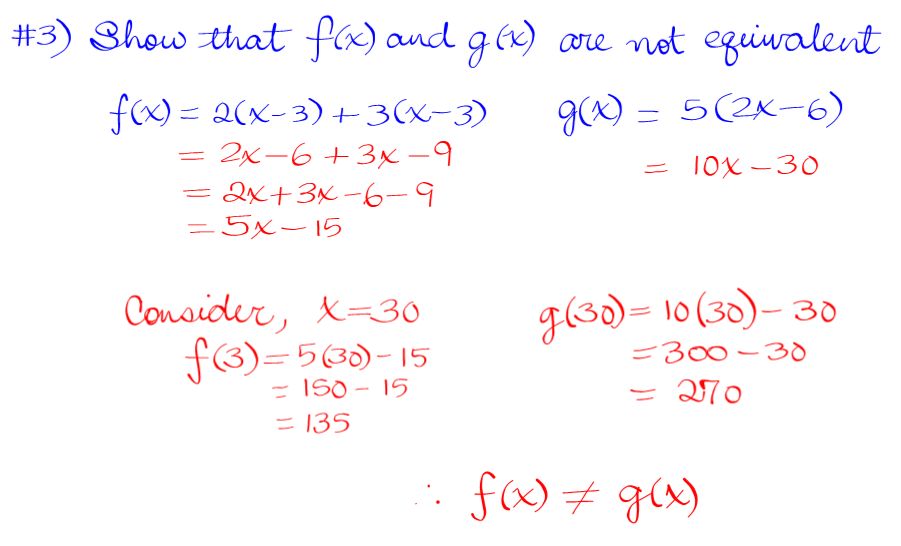 #3) Show that f(x) and g(x) are not equivalent
f(x) = 2(x-3) + 3(x-3)
= 2x-6 + 3x-9
= 2x+3x-6-9
= 5x-15
g(x) = 5(2x-6)
= 10x-30
Consider, x=30
f(3) = 5(30)-15
= 150-15
= 135
g(30) = 10(30)-30
= 300-30
= 270
∴ f(x) ≠ g(x)